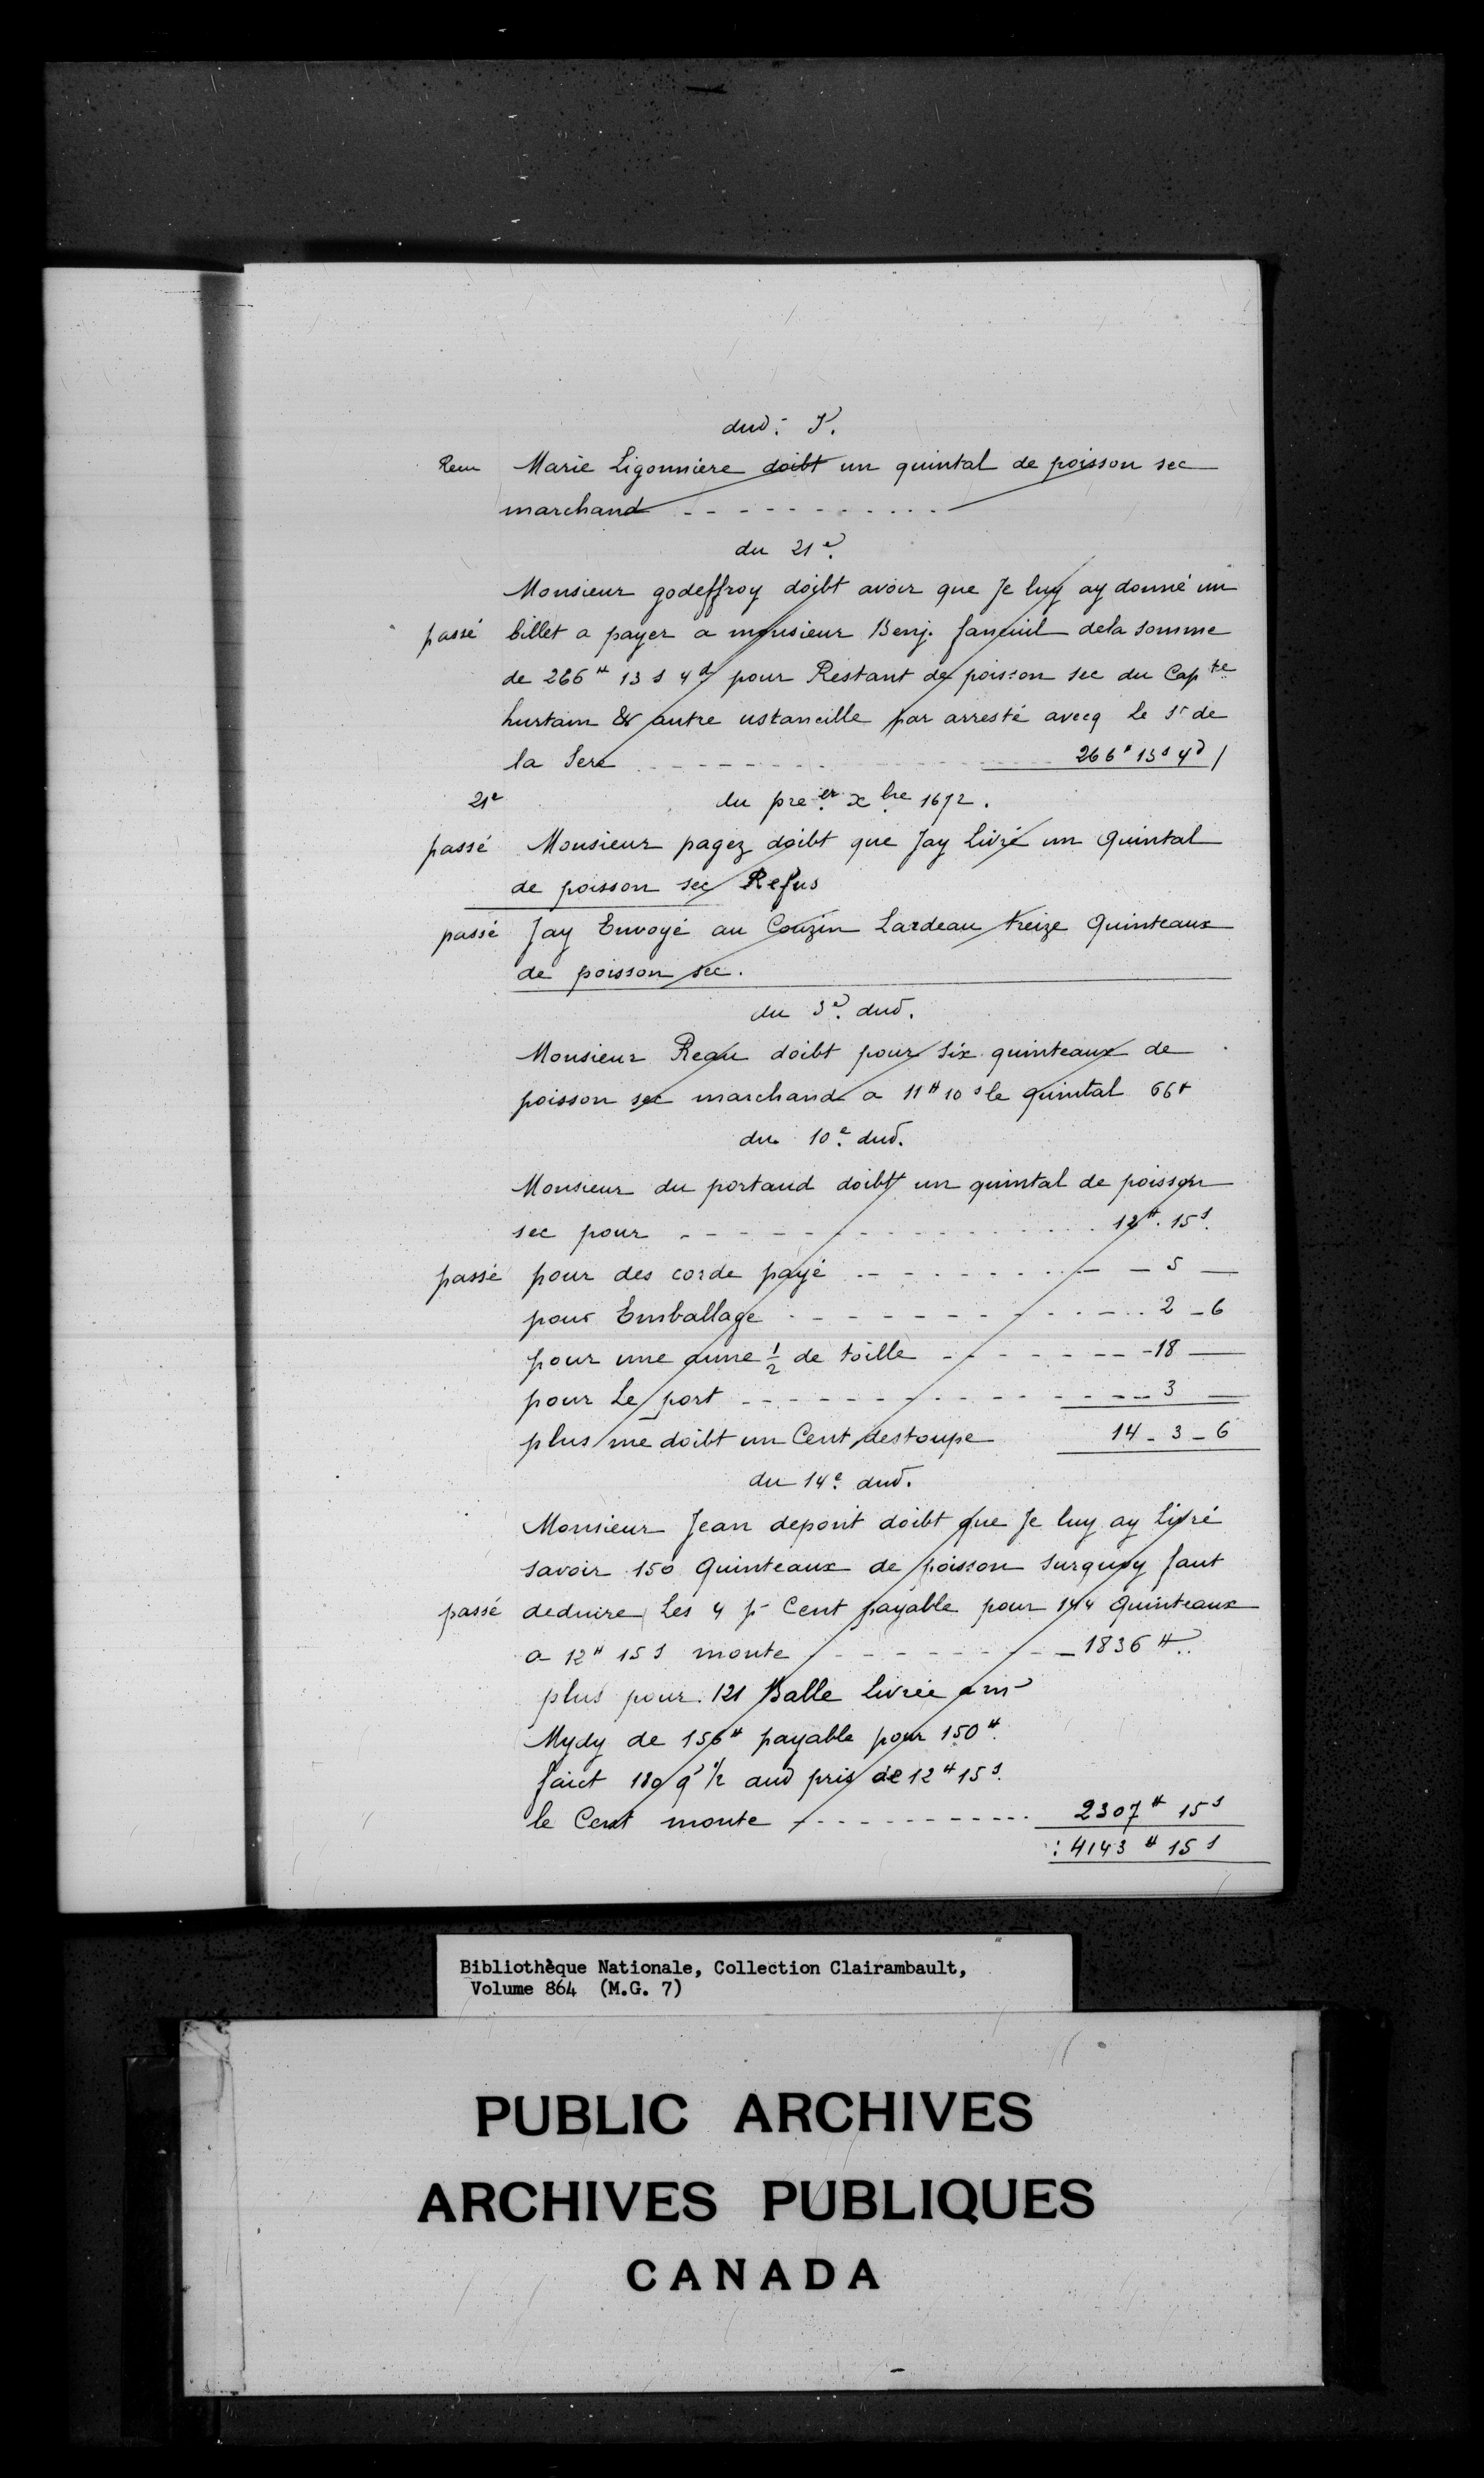 dud: J.
Reçu Marie Ligonniere doibt un quintal de poisson sec
marchand
du 21e.
Monsieur godeffroy doibt avoir que Je luy ay donné un
passé billet a payer a monsieur Benj. faneuil dela somme
de 266# 13 s 4d pour Restant de poisson sec du Capte
hurtain & autre ustancille par arresté avecq Le Sr de
la Sere 266# 13s 4d /
21e du preer. xbre 1672.
passé Monsieur pagez doibt que Jay Livré un Quintal
de poisson sec Refus
passé Jay Envoyé au Couzin Lardeau treize Quinteaux
de poisson sec.
du 3e. dud.
Monsieur Reau doibt pour six quinteaux de
poisson sec marchand a 11# 10s le quintal 66#
du 10e. dud.
Monsieur du portaud doibt un quintal de poisson
sec pour 12#. 15s.
passé pour des corde payé 5
pour Emballage 2 - 6
pour une aune 1/2 de toille 18
pour Le port 3
plus me doibt un Cent destoupe 14 - 3 - 6
du 14e. dud.
Monsieur Jean depont doibt que Je luy ay Livré
savoir 150 Quinteaux de poisson surquoy faut
passé deduire Les 4 p Cent payable pour 144 Quinteaux
a 12# 15 s monte 1836#..
plus pour 121 Balle Livrée
Mydy de 156# payable pour 150#.
faict 180 q 1/2 aud pris de 12# 15s.
le Cent monte 2307# 15s
: 4143# 15s
Bibliothèque Nationale, Collection Clairambault,
Volume 864 (M.G. 7)
PUBLIC ARCHIVES
ARCHIVES PUBLIQUES
CANADA